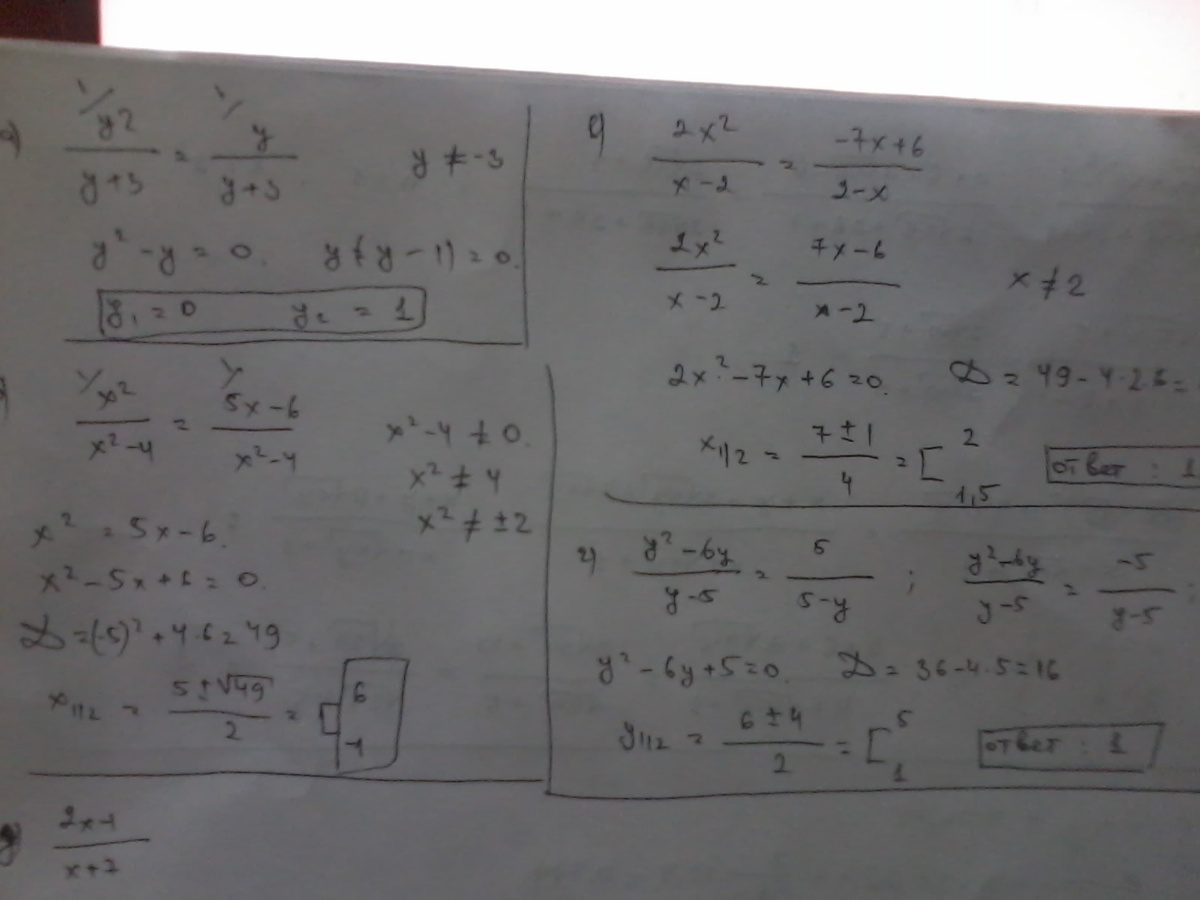 y²/(y+3) = y/(y+3)    y ≠ -3
y² - y = 0.    y(y - 1) = 0.
y₁ = 0    y₂ = 1
x²/(x²-4) = (5x-6)/(x²-4)    x²-4 ≠ 0.
x² ≠ 4
x² = 5x-6.    x² ≠ ±2
x² - 5x + 6 = 0.
D = (-5)² + 4·6 = 49
x₁,₂ = (5 ± √49)/2 = [ 6 -1
(2x-1)/(x+7)
2x²/(x-2) = (-7x+6)/(2-x)
2x²/(x-2) = (7x-6)/(x-2)    x ≠ 2
2x² - 7x + 6 = 0.    D = 49 - 4·2·6 =
x₁,₂ = (7 ± 1)/4 = [ 2 1,5    ответ : 1
г) (y²-6y)/(y-5) = 5/(5-y) ;    (y²-6y)/(y-5) = -5/(y-5) ;
y² - 6y + 5 = 0.    D = 36-4·5 = 16
y₁,₂ = (6 ± 4)/2 = [ 5 1    ответ : 1